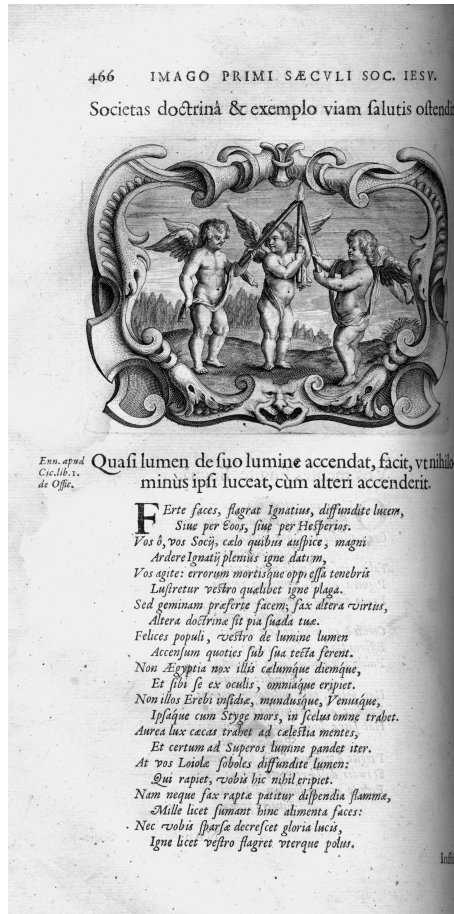 466 IMAGO PRIMI SÆCVLI SOC. IESV.
Societas doctrinâ & exemplo viam ſalutis oſtendit
Enn. apud
Cic. lib. 1.
de Offic.
Quaſi lumen de ſuo lumine accendat, facit, vt nihilo
minùs ipſi luceat, cùm alteri accenderit.
FErte faces, flagrat Ignatius, diffundite lucem,
Siue per Eoos, ſiue per Heſperios.
Vos ô, vos Socij, cælo quibus auſpice, magni
Ardere Ignatij plenius igne datum,
Vos agite: errorum mortiſque oppreſſa tenebris
Luſtretur veſtro quælibet igne plaga.
Sed geminam præferte facem; fax altera virtus,
Altera doctrinæ ſit pia ſuada tuæ.
Felices populi, veſtro de lumine lumen
Accenſum quoties ſub ſua tecta ferent.
Non Ægyptia nox illis cælumque diemque,
Et ſibi ſe ex oculis, omniáque eripiet.
Non illos Erebi inſidiæ, mundusque, Venusque,
Ipſaque cum Styge mors, in ſcelus omne trahet.
Aurea lux cæcas trahet ad cæleſtia mentes,
Et certum ad Superos lumine pandet iter.
At vos Loiolæ ſoboles diffundite lumen:
Qui rapiet, vobis hic nihil eripiet.
Nam neque fax raptæ patitur diſpendia flammæ,
Mille licet ſumant hinc alimenta faces:
Nec vobis ſparſæ decreſcet gloria lucis,
Igne licet veſtro flagret vterque polus.